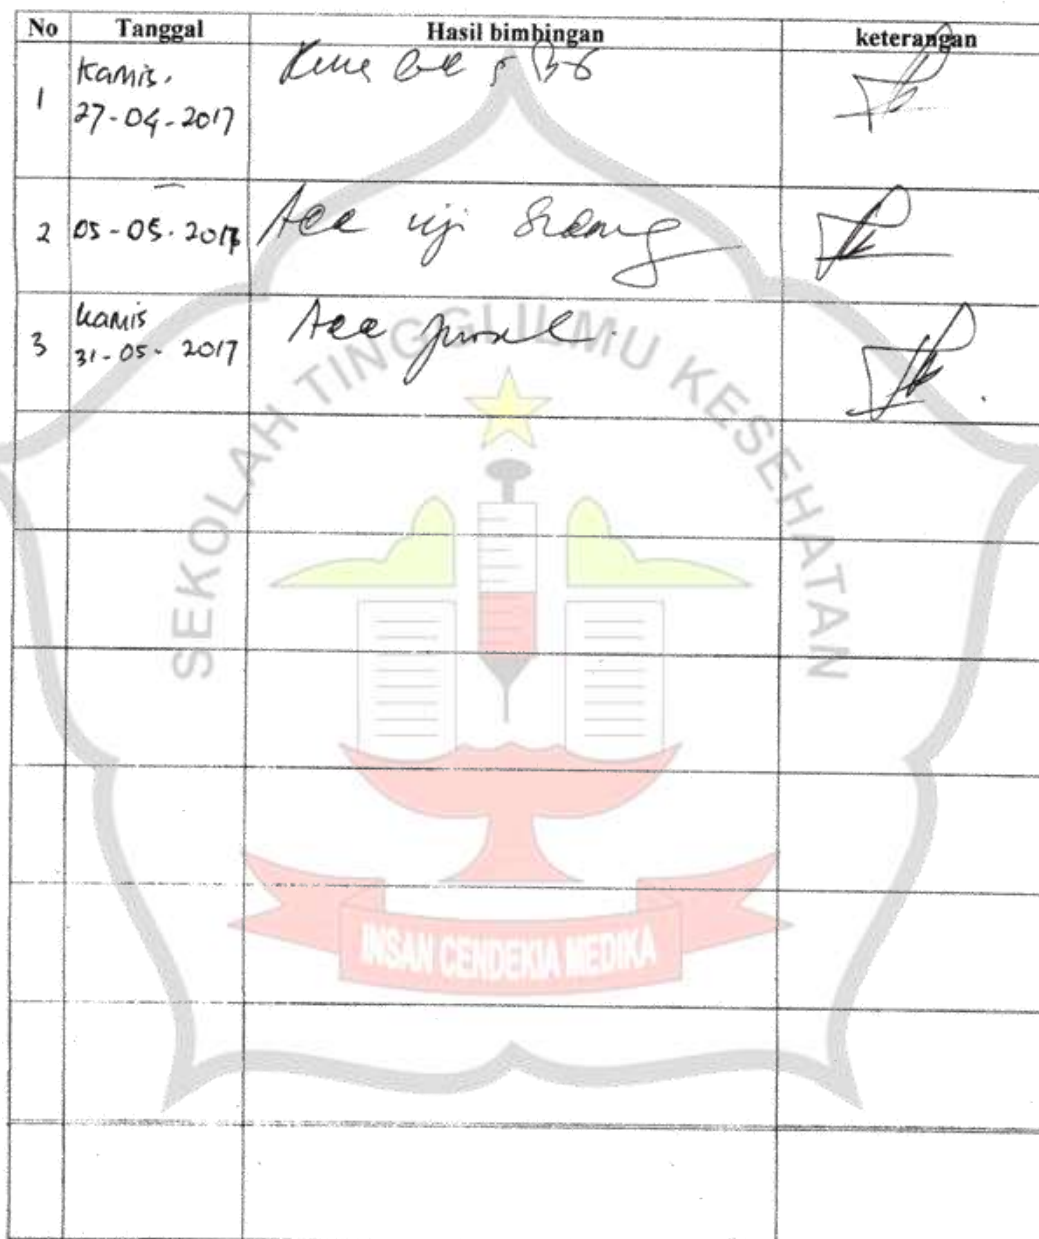 No Tanggal Hasil bimbingan keterangan
1 Kamis. 27-04-2017
2 05-05-2017 Acc uji
3 Kamis 31-05-2017 Acc
SEKOLAH TINGGI ILMU KESEHATAN
INSAN CENDEKIA MEDIKA